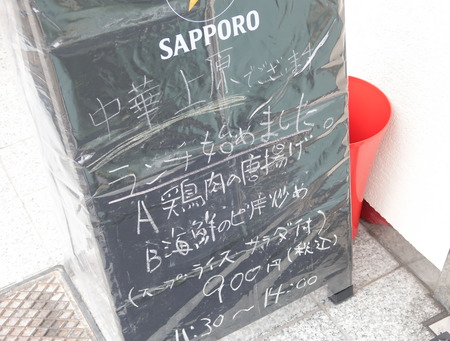 SAPPORO
中華上原でございます
ランチ始めました。
A 鶏肉の唐揚げ
B 海鮮のピリ辛炒め
(スープ・ライス・サラダ付)
900円(税込)
11:30～14:00